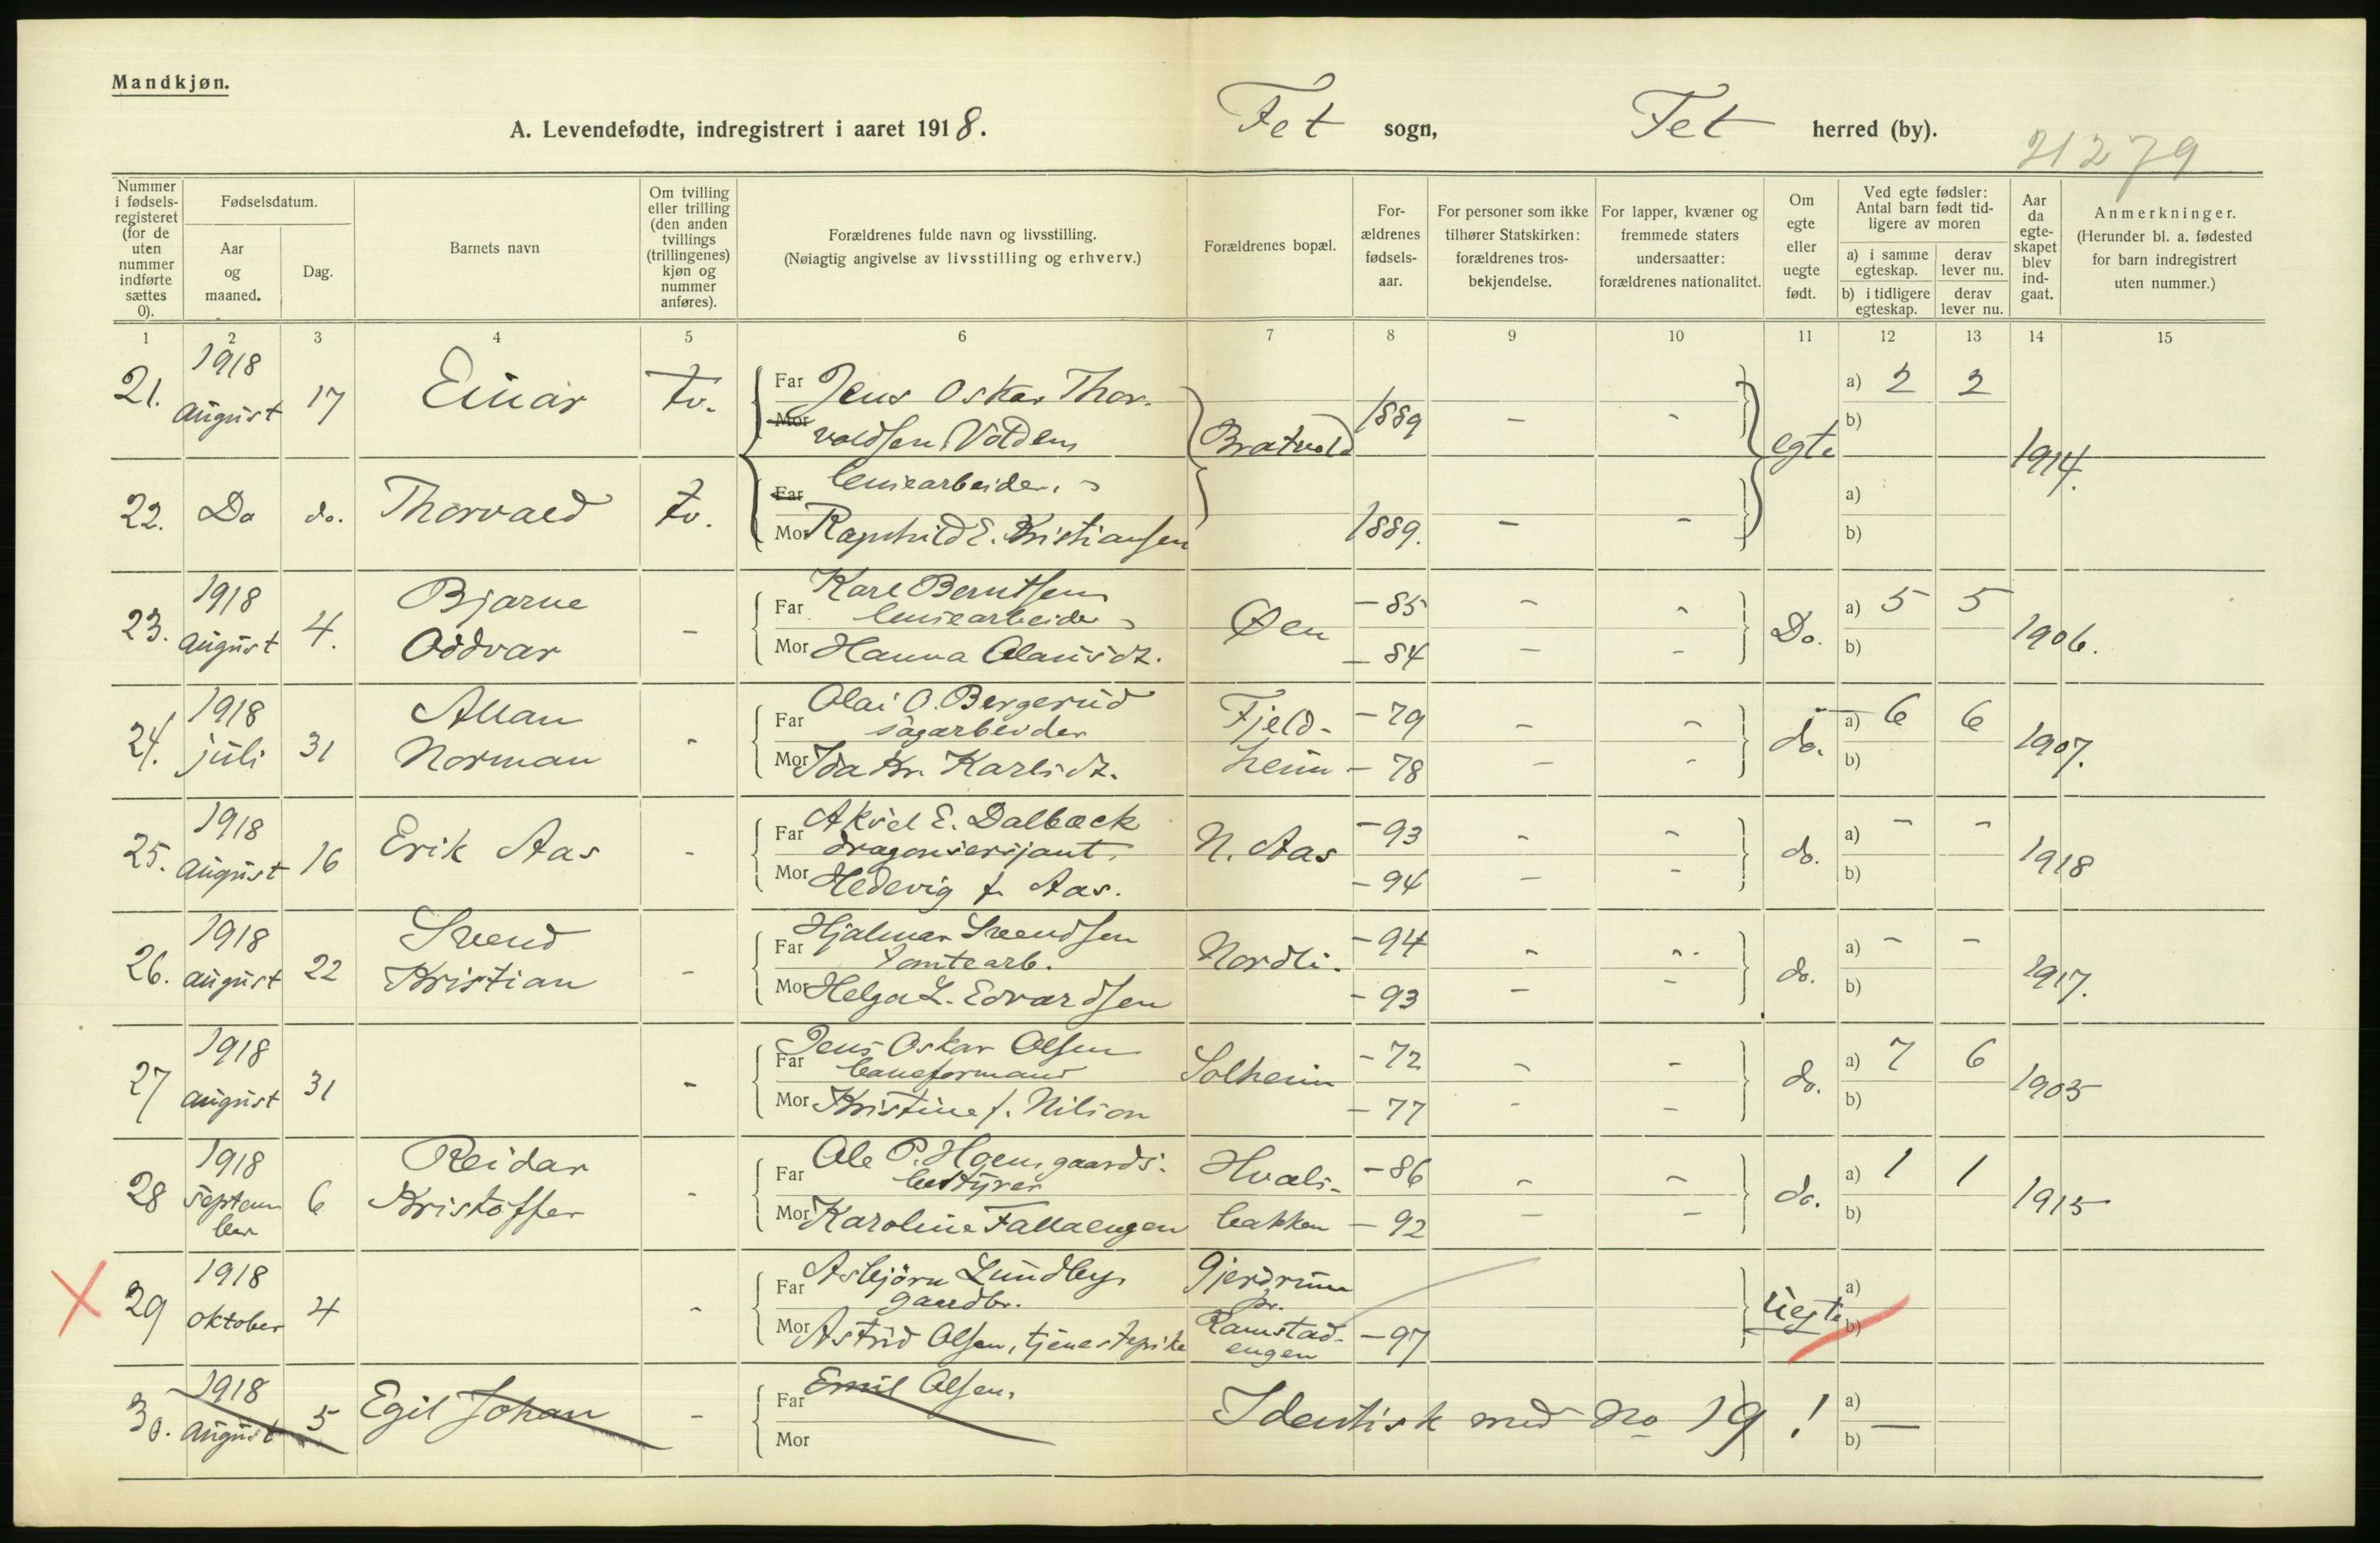 Mandkjøn.
A. Levendefødte, indregistrert i aaret 1918. Fet sogn, Fet herred (by).
21279
Nummer i fødsels-registeret (for de uten nummer indførte sættes 0).
Fødselsdatum.
Aar og maaned.
Dag.
Barnets navn
Om tvilling eller trilling (den anden tvillings (trillingenes) kjøn og nummer anføres).
Forældrenes fulde navn og livsstilling.
(Nøiagtig angivelse av livsstilling og erhverv.)
Forældrenes bopæl.
For-ældrenes fødsels-aar.
For personer som ikke tilhører Statskirken: forældrenes tros-bekjendelse.
For lapper, kvæner og fremmede staters undersaatter: forældrenes nationalitet.
Om egte eller uegte født.
Ved egte fødsler: Antal barn født tid-ligere av moren
a) i samme egteskap.
derav lever nu.
b) i tidligere egteskap.
derav lever nu.
Aar da egte-skapet blev ind-gaat.
Anmerkninger.
(Herunder bl. a. fødested for barn indregistrert uten nummer.)
1 2 3 4 5 6 7 8 9 10 11 12 13 14 15
21. 1918 august 17 Einar tv. Far Jens Oskar Thor- 1889 - - a) 2 2
Mor voldsen Volden Bratvold egte b) 1914.
22. Do do. Thorvald tv. Far liniearbeider. a)
Mor Ragnhild E. Kristiansen 1889. - - b)
23. 1918 august 4. Bjarne Oddvar - Far Karl Berntsen liniearbeider Øen - 85 - - Do. a) 5 5 1906.
Mor Hanna Olausdt. - 84 - - b)
24. 1918 juli 31 Allan Norman - Far Olai O. Bergerud sagarbeider Fjeld- - 79 - - do. a) 6 6 1907.
Mor Ida Kr. Karlsdt. heim - 78 - - b)
25. 1918 august 16 Erik Aas - Far Aksel E. Dalbæck dragonsersjant. N. Aas - 93 - - do. a) - - 1918
Mor Hedevig f. Aas. - 94 - - b)
26. 1918 august 22 Svend Kristian - Far Hjalmar Svendsen tomtearb. Nordli. - 94 - - do. a) - - 1917.
Mor Helga L. Edvardsen - 93 - - b)
27 1918 august 31 - Far Jens Oskar Olsen baneformand Solheim - 72 - - do. a) 7 6 1905
Mor Kristine f. Nilson - 77 - - b)
28 1918 septem ber 6 Reidar Kristoffer - Far Ole P. Hoem, gaards- bestyrer Hvals- - 86 - - do. a) 1 1 1915
Mor Karoline Fallaengen bakken - 92 - - b)
29 1918 oktober 4 - Far Asbjörn Lundby, gaardbr. Gjerdrum pr. uegte a)
Mor Astrid Olsen, tjenestepike Ramstad- engen - 97 b)
30. 1918 august 5 Egil Johan - Far Emil Olsen, Identisk med No 19! a) -
Mor b)